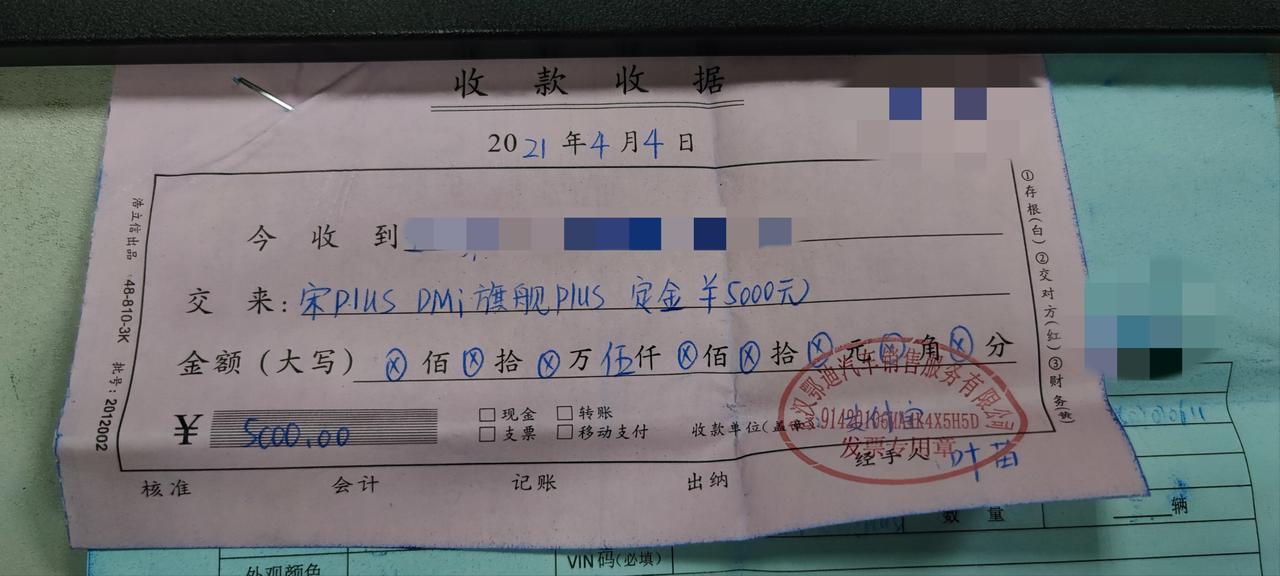 收款收据
2021年4月4日
今收到
交来：宋PIUS DMi 旗舰PIUS 定金￥5000元
金额（大写）ⓧ佰ⓧ拾ⓧ万伍仟ⓧ佰ⓧ拾ⓧ元ⓧ角ⓧ分
￥ 5000.00 □现金 □转账
□支票 □移动支付 收款单位(盖章)
汉鄂迪汽车销售服务有限公司
发票专用章
经手人 叶苗
核准 会计 记账 出纳
浩立信出品 48-810-3K 批号：2012002
①存根(白)②交对方(红)③财务(黄)
数量 辆
VIN码(必填)
外观颜色